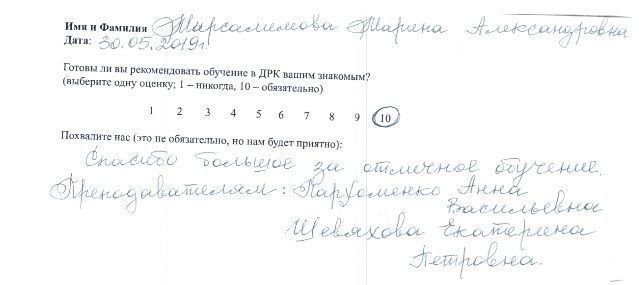 Имя и Фамилия Марсалимова Марина Александровна
Дата: 30.05.2019г.
Готовы ли вы рекомендовать обучение в ДРК вашим знакомым?
(выберите одну оценку; 1 – никогда, 10 – обязательно)
1 2 3 4 5 6 7 8 9 10
Похвалите нас (это не обязательно, но нам будет приятно):
Спасибо большое за отличное обучение.
Преподавателям: Пархоменко Анна
Васильевна
Шевяхова Екатерина
Петровна.